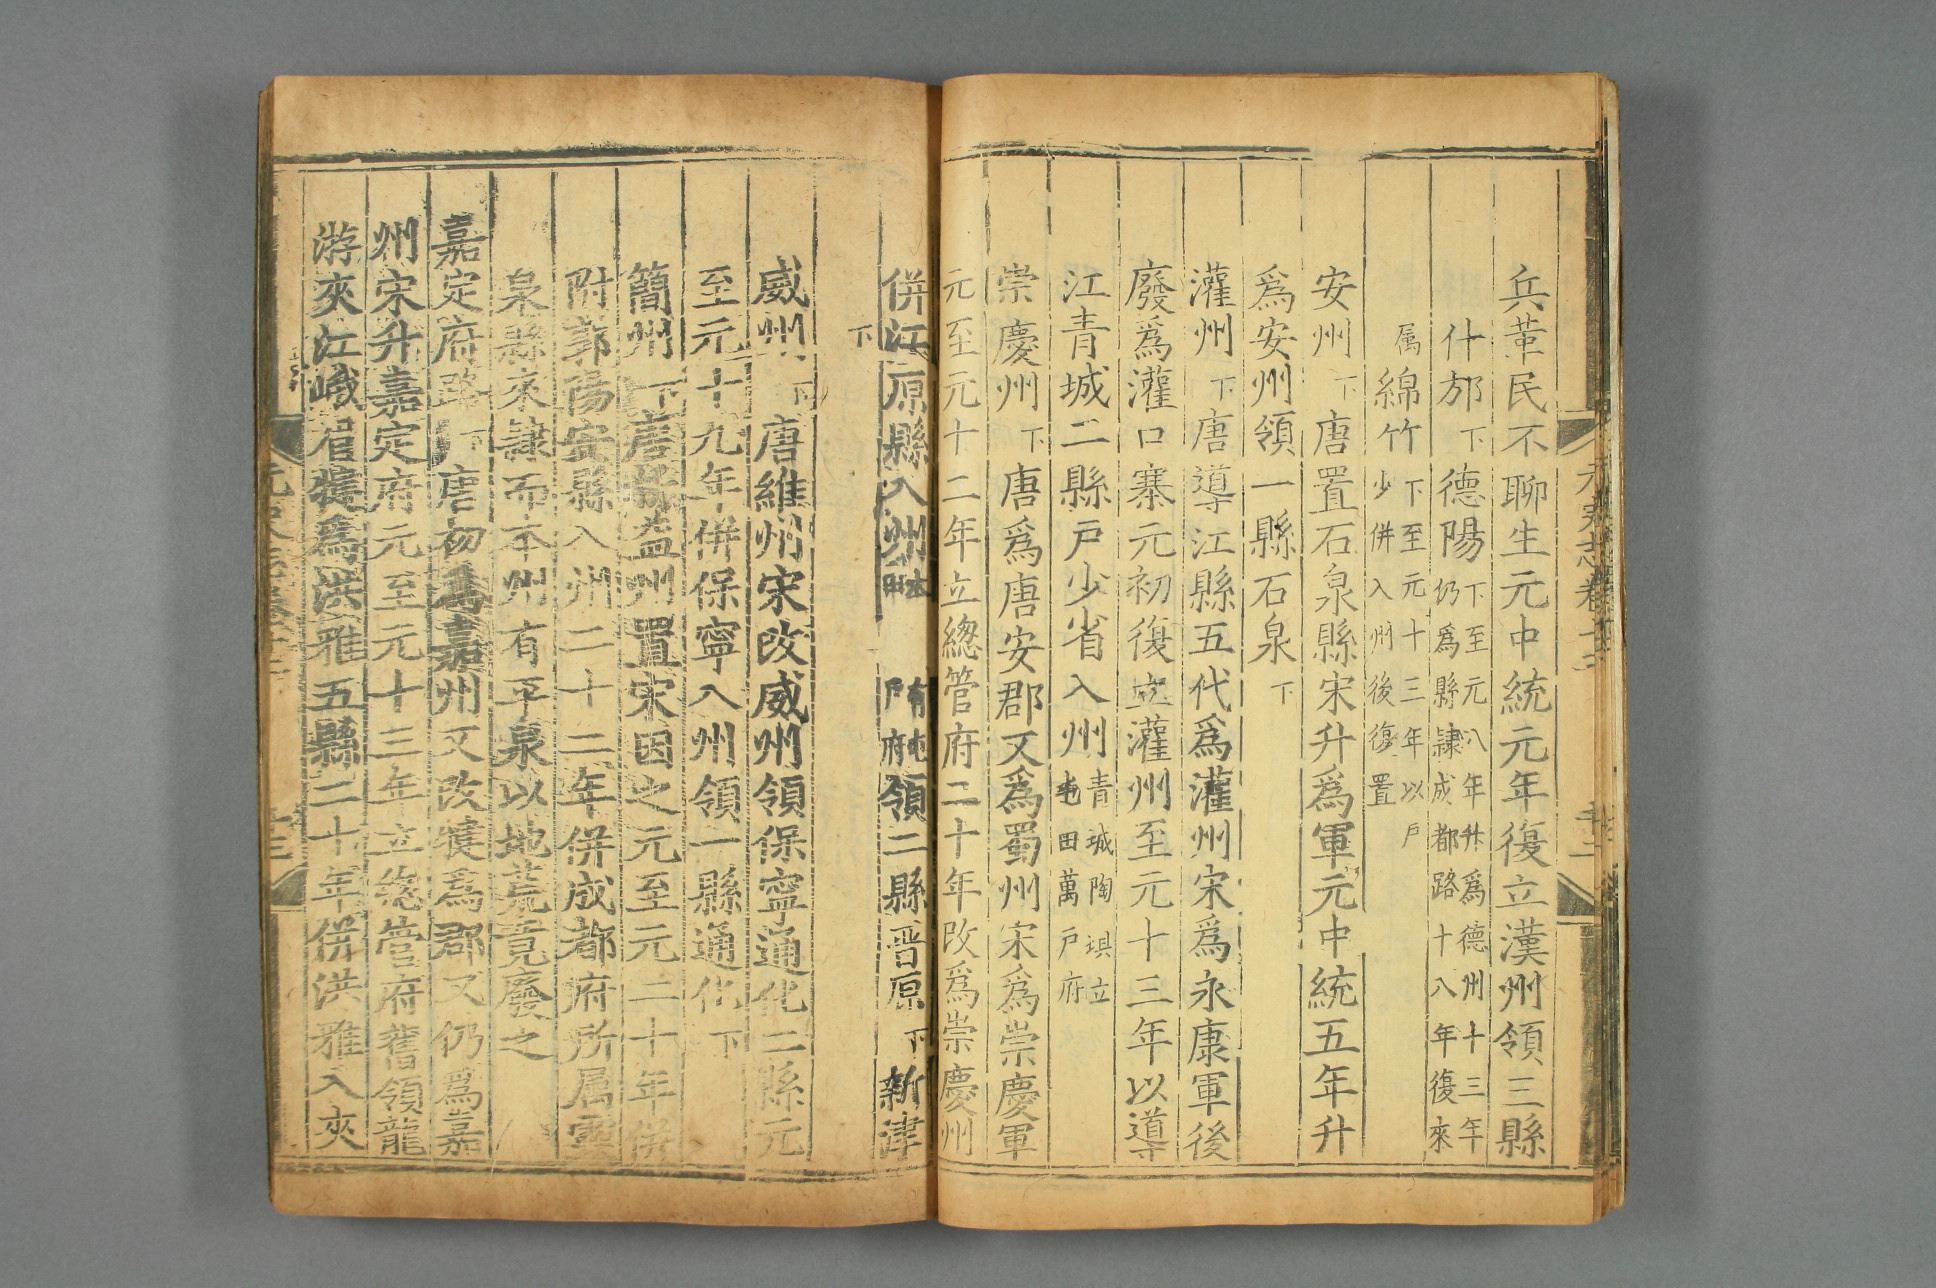 兵革民不聊生元中統元年復立漢州領三縣
什邡下德陽下至元八年升為德州十三年仍為縣隷成都路十八年復來
属綿竹下至元十三年以戶少併入州後復置
安州下唐置石泉縣宋升為軍元中統五年升
爲安州領一縣石泉下
灌州下唐導江縣五代爲灌州宋爲永康軍後
廢爲灌口寨元初復立灌州至元十三年以導
江青城二縣戶少省入州青城陶垻立屯田萬戶府
崇慶州下唐爲唐安郡又爲蜀州宋爲崇慶軍
元至元十二年立緫管府二十年改爲崇慶州
併江原縣入州領二縣晋原下新津
下
威州下唐維州宋改威州領保寧通化二縣元
至元十九年併保寧入州領一縣通化下
簡州下唐析益州置宋因之元至元二十年併
附郭陽安縣入州二十二年併成都府所属靈
泉縣來隷而本州有平泉以地荒竟廢之
嘉定府路下唐初爲嘉州又改犍爲郡又仍爲嘉
州宋升嘉定府元至元十三年立緫管府舊領龍
游夾江峨眉犍爲洪雅五縣二十年併洪雅入夾